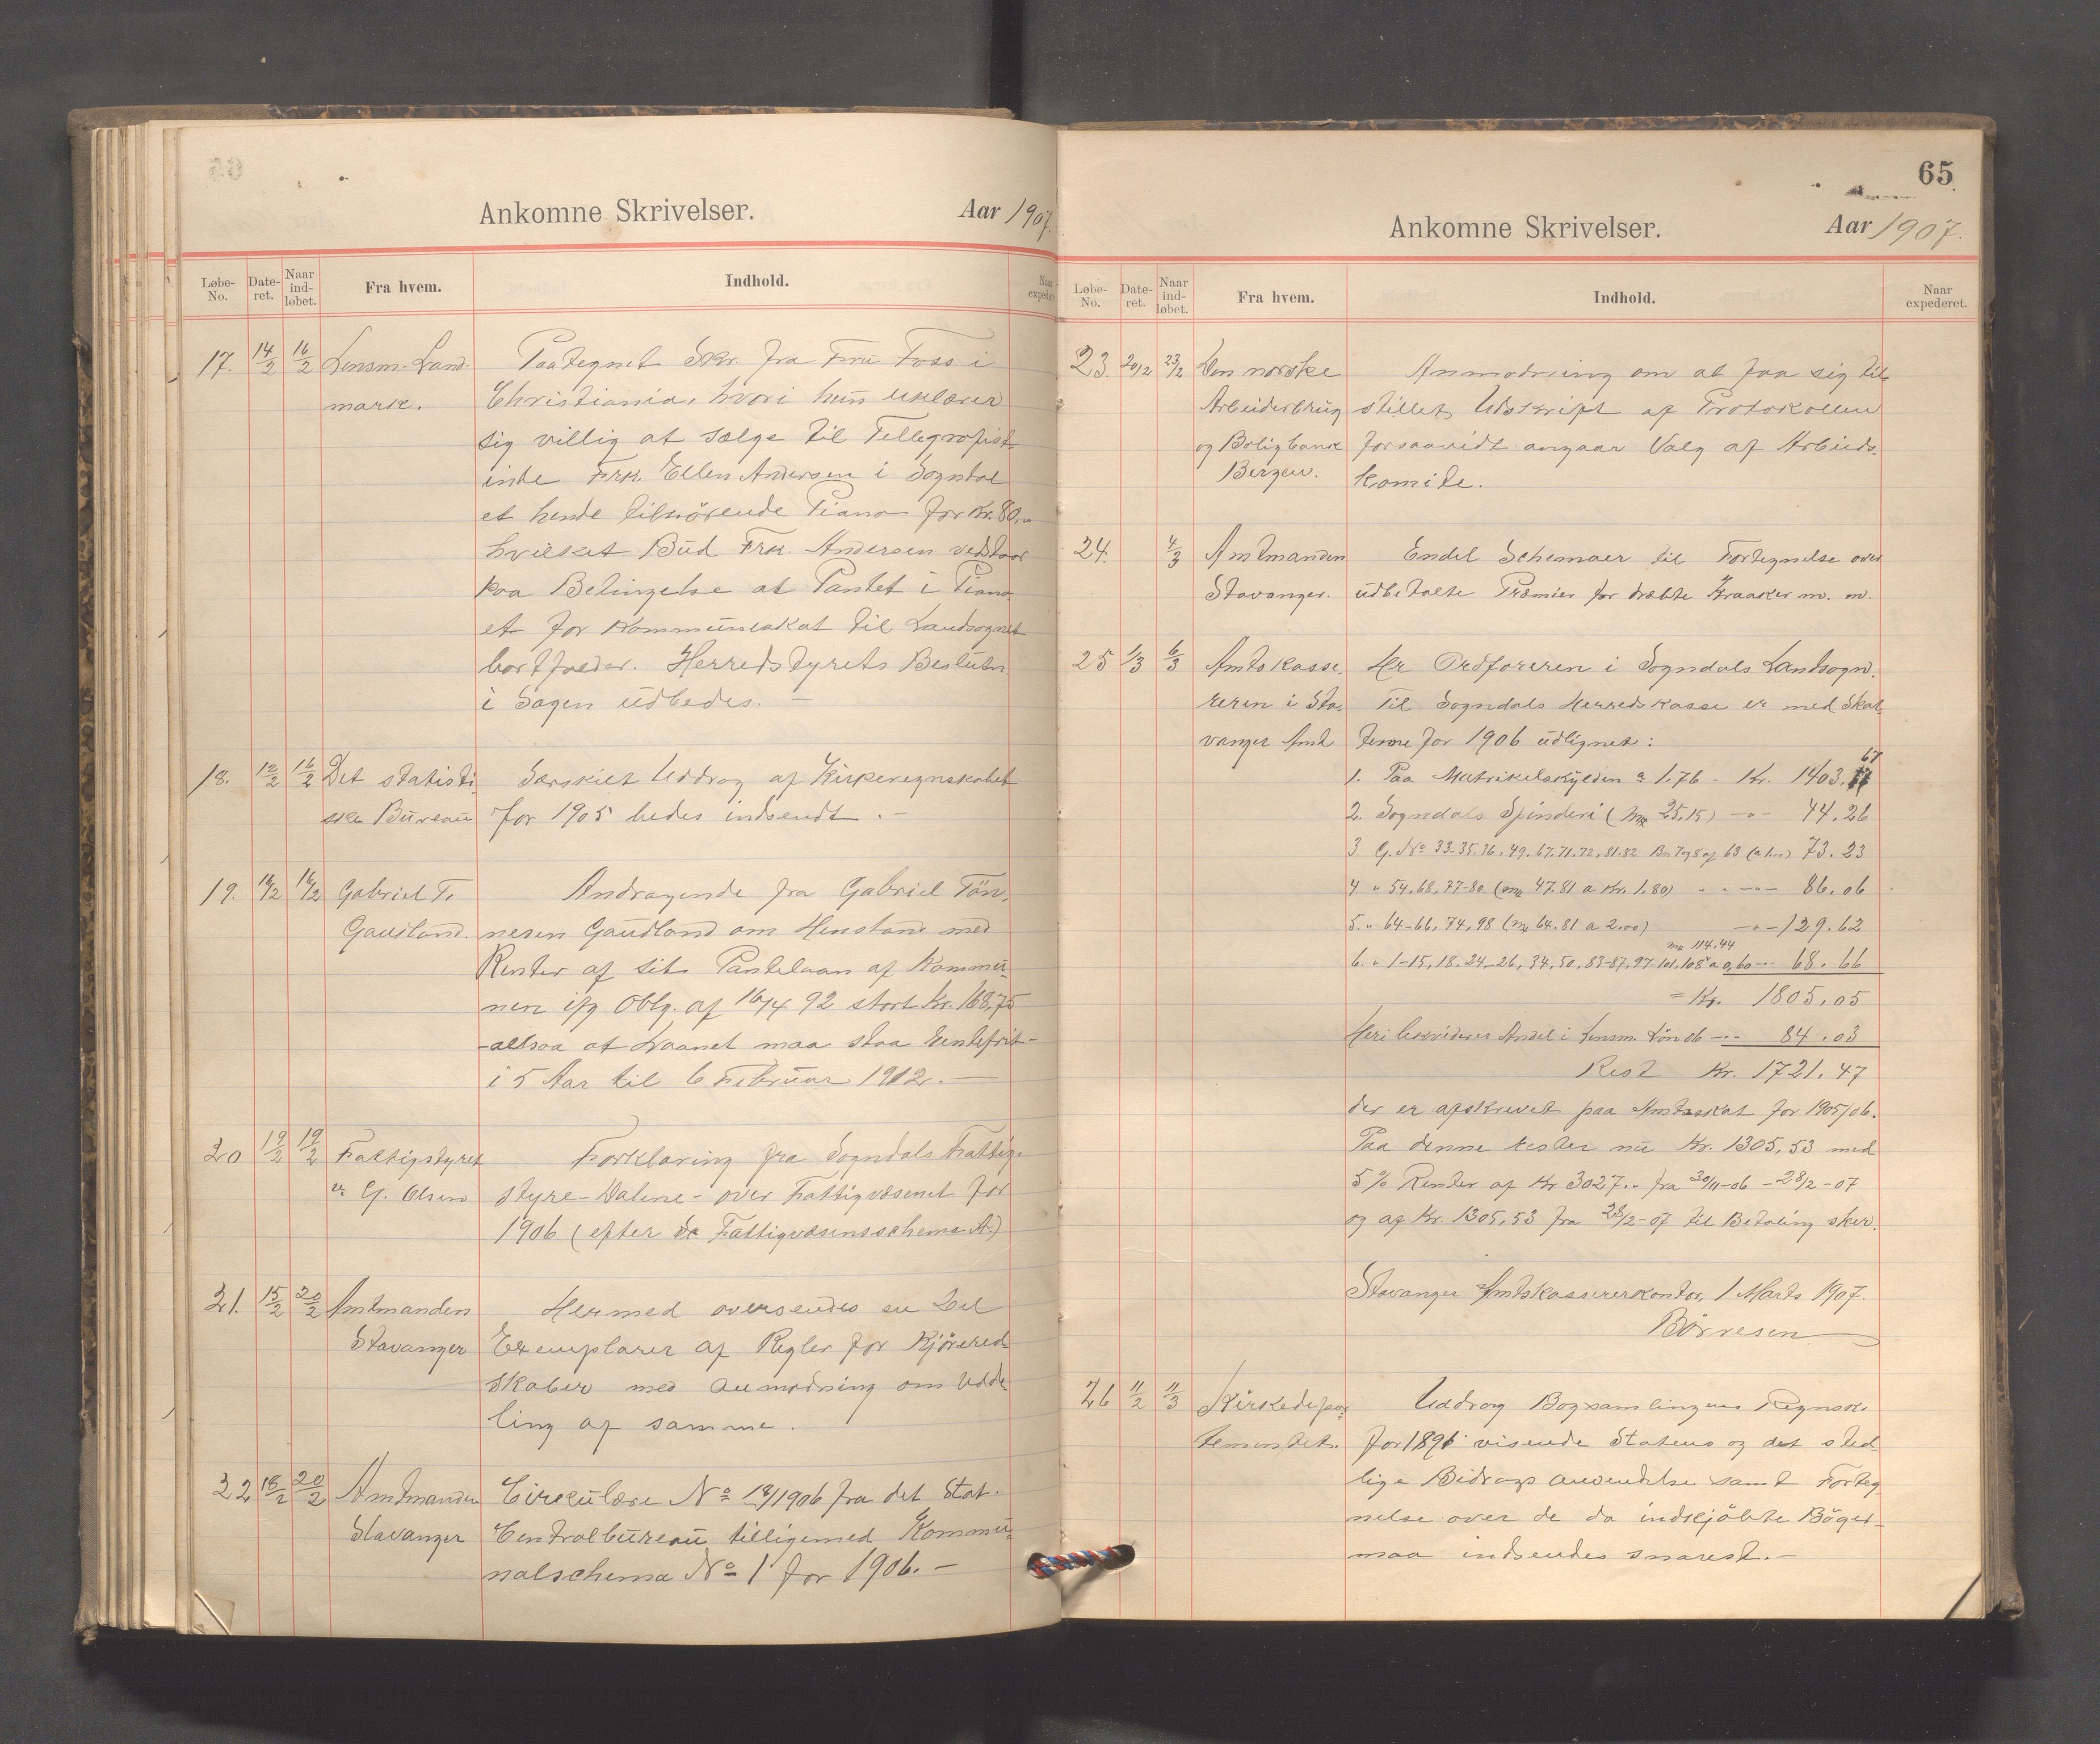 Ankomne Skrivelser. Aar 1907.
Løbe-No. Date-ret. Naar ind-løbet. Fra hvem. Indhold. Naar expederet.
17. 14/2 16/2 Lensm. Land- Paategnet Skr. fra Fru Foss i
mark. Christiania, hvori hun erklærer
sig villig at sælge til Tellegrafist-
inde Frk. Ellen Andersen i Sogndal
et hende tilhörende Piano for Kr. 80,-
hvilket Bud Frk. Andersen vedstaar
paa Betingelse at Pantet i Piano-
et for Kommuneskat til Landsognet
bortfalder. Herredstyrets Beslutn.
i Sagen udbedes. -
18. 12/2 16/2 Det statisti- Særskilt Uddrag af Kirkeregnskabet
ske Bureau for 1905 bedes indsendt. -
19. 16/2 16/2 Gabriel T. Andragende fra Gabriel Tön-
Gaudland. nesen Gaudland om Henstand med
Renter af sit Pantelaan af Kommu-
nen ifg Oblg. af 16/4 92 stort Kr. 168,75
- altsaa at Laanet maa staa Rentefrit -
i 5 Aar til 6 Februar 1912. -
20 19/2 19/2 Fattigstyret Forklaring fra Sogndals Fattig-
v. G. Olsen styre - Dalene - over Fattigvæsenet for
1906 (efter Fattigvæsensschema A.)
21. 15/2 20/2 Amtmanden Hermed oversendes en Del
Stavanger Exemplarer af Regler for Kjöred-
skaber med Anmodning om Udde-
ling af samme.
22 18/2 20/2 Amtmanden Cirkulære No 12/1906 fra det Stat.
Stavanger Centralbureau tilligemed Kommu-
nalschema No 1 for 1906. -
65
Ankomne Skrivelser. Aar 1907.
Løbe-No. Date-ret. Naar ind-løbet. Fra hvem. Indhold. Naar expederet.
23. 20/2 23/2 Den norske Anmodning om at faa sig til-
Arbeiderbrug stillet Udskrift af Protokollen
og Boligbank forsaavidt angaar Valg af Arbeids-
Bergen. komite.
24. 4/3 Amtmanden Endel Schemaer til Fortegnelse over
Stavanger. udbetalte Præmier for dræbte Kraaker m. m.
25 1/3 6/3 Amtskasse- Hr Ordföreren i Sogndals Landsogn.
reren i Sta- Til Sogndals Herredskasse er med Skat-
vanger Amt terne for 1906 udlignet:
1. Paa Matrikelskylden a 1.76 - Kr. 1403.
2. Sogndals Spinderi (Mk 25,15) -"- 44.26
3 G. No 33-35.36,49.67.71.72,81.82 73.23
4 " 54.68,77-80 (Mk 47.81 a Kr. 1.80) 86.06
5. " 64-66, 74, 98 (Mk 64.81 a 2.00) -"- 129.62
mk 114.44
6. " 1-15,18.24-26, 34,50,83-87,97-101,108 a 0,60 68.66
= Kr. 1805.05
Heri Andel i Lensm. Lön 06 84.03
Rest Kr. 1721.47
der er afskrevet paa Amtsskat for 1905/06.
Paa denne rester nu Kr. 1305,53 med
5 % Renter af Kr 3027.- fra 30/11-06 - 28/2-07
og af Kr. 1305,53 fra 28/2-07 til Betaling sker.
Stavanger Amtskassererkontor, 1 Marts 1907.
Börresen
26 11/2 11/3 Kirkedepar- Uddrag Bogsamlingens Regnsk.
tementet. for 1896 visende Statens og det sted-
lige Bidrags anvendelse samt Forteg-
nelse over de da indkjöbte Böger -
maa indsendes snarest. -